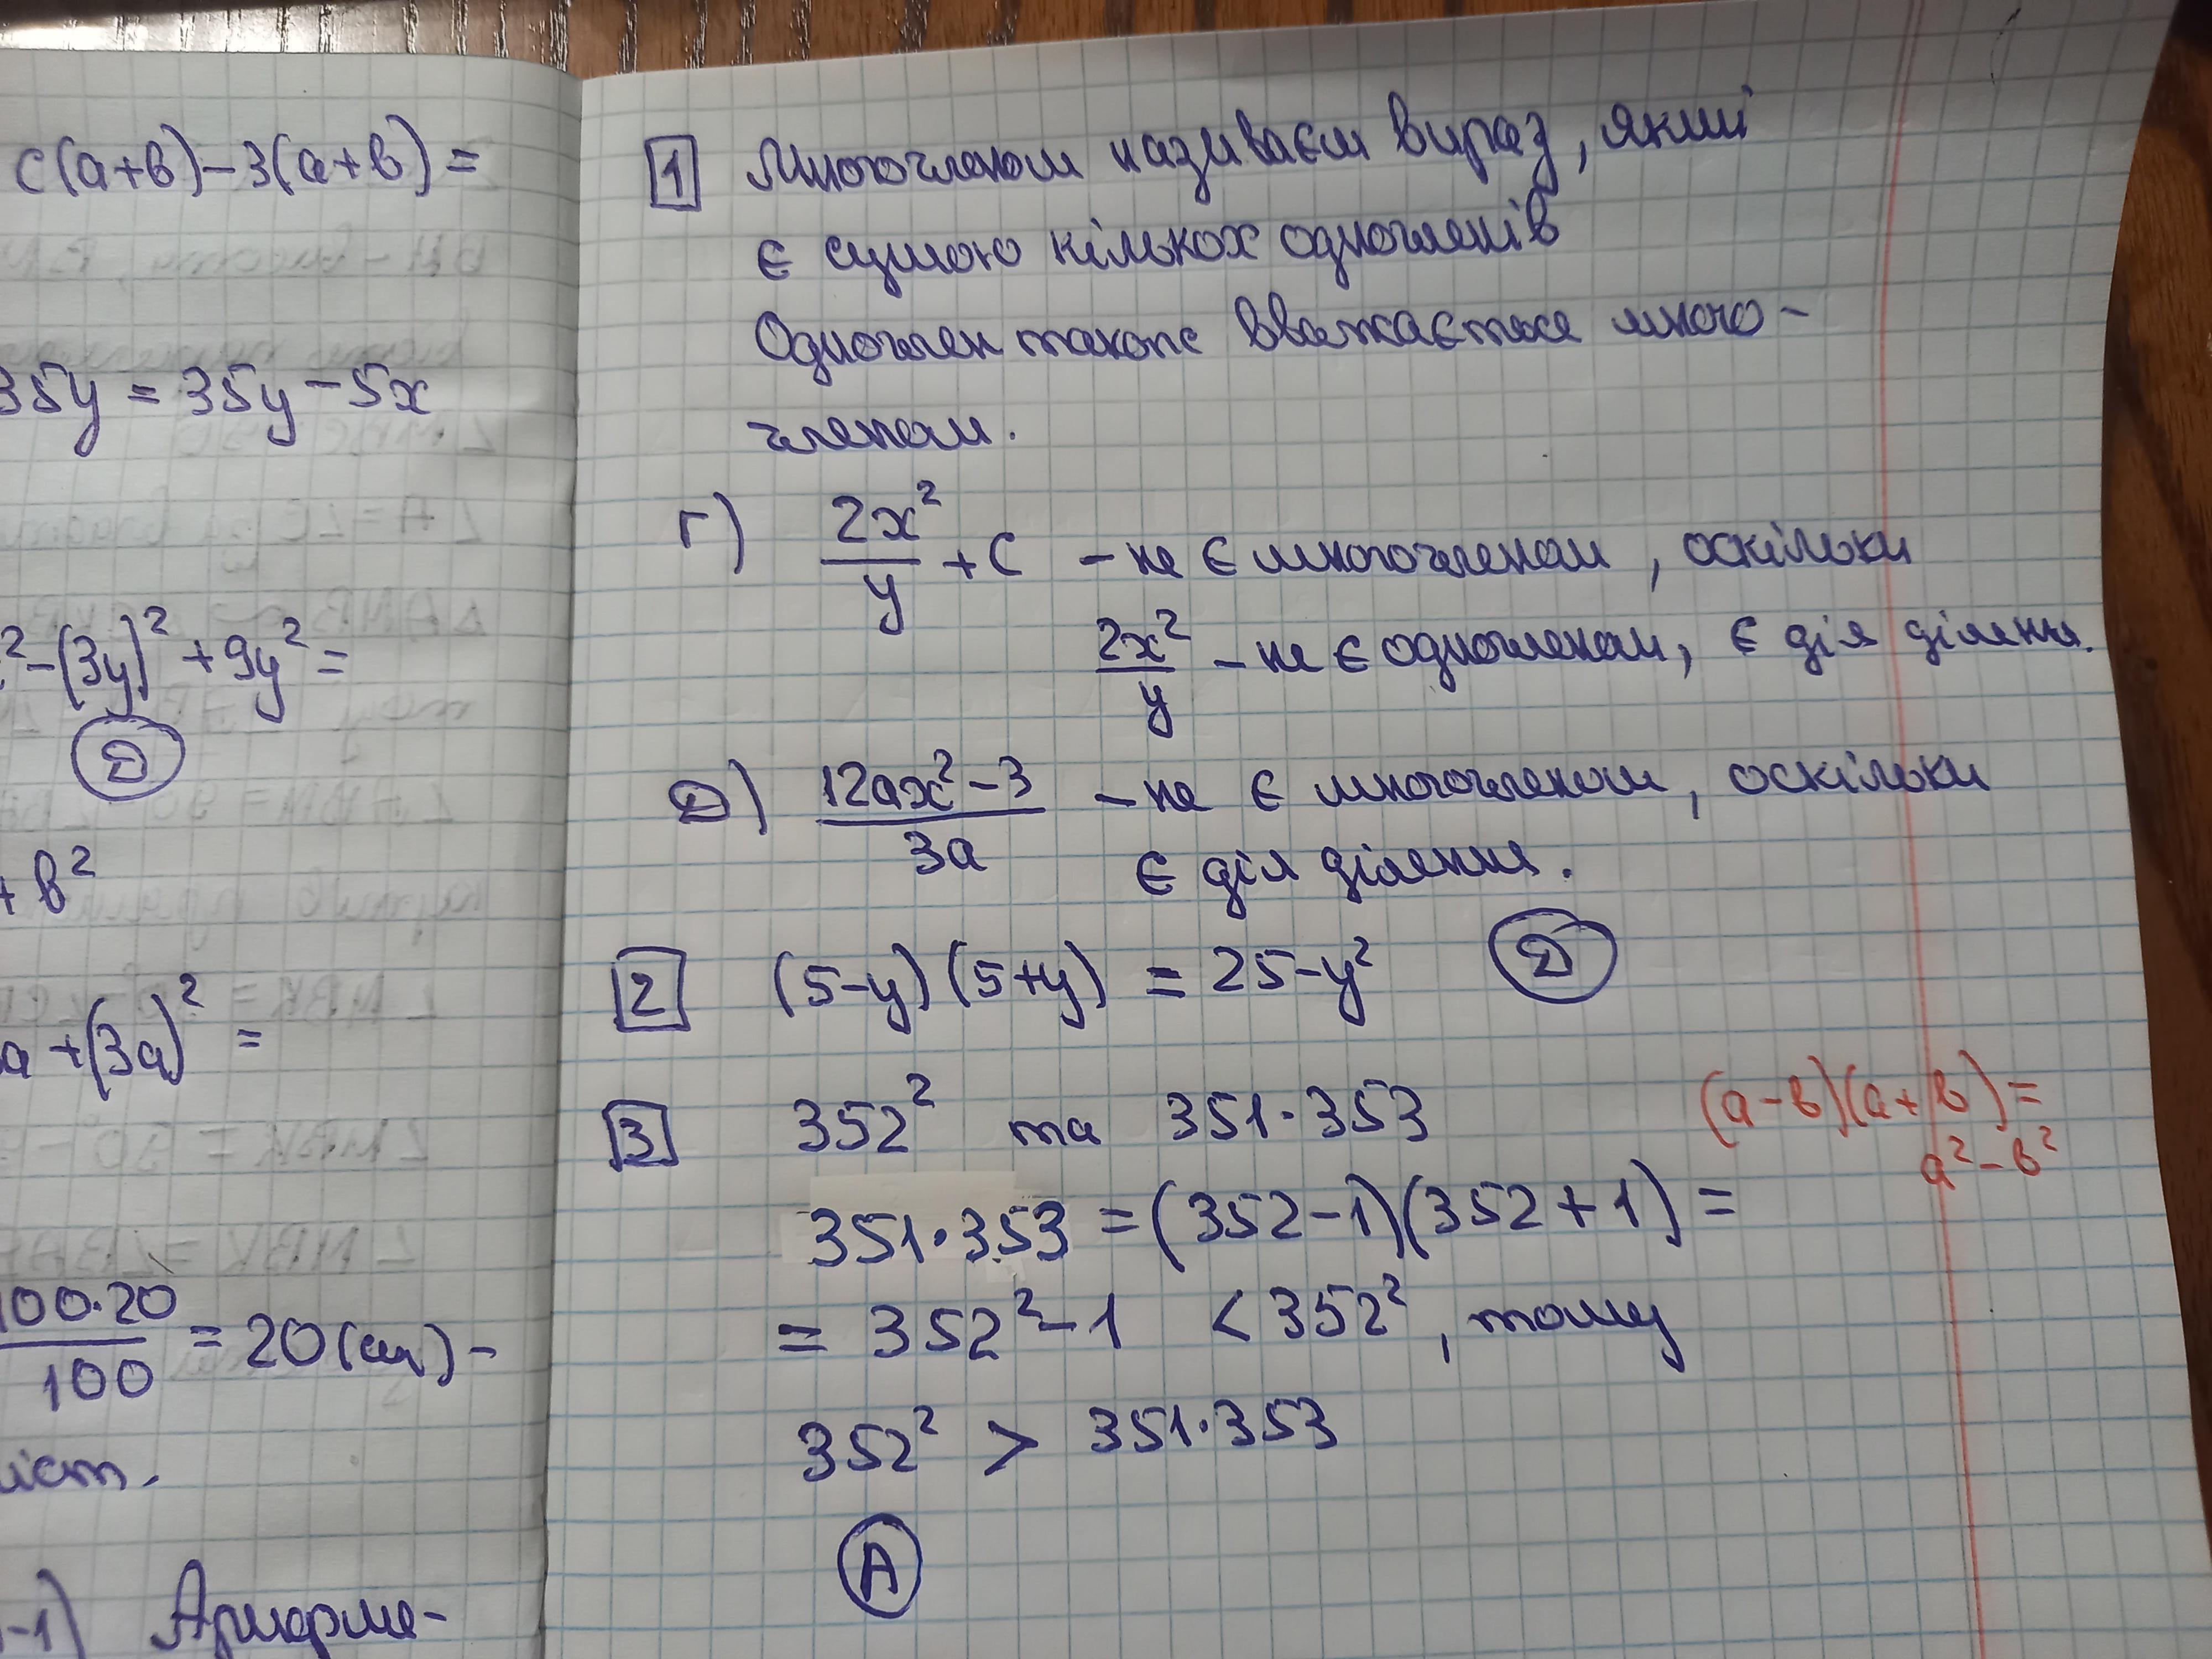 с(а+в)-3(а+в)=
35y = 35y - 5x
²-(3y)²+9y²=
Д
+ в²
а+(3а)² =
100·20/100 = 20(см) -
-1) Арифме-
1 Многочленом називаєм вираз, який
є сумою кількох одночленів
Одночлен також вважається много-
членом.
Г) 2x²/y + c - не є многочленом, оскільки
2x²/y - не є одночленом, є дія ділення.
Д) 12ax²-3/3a - не є многочленом, оскільки
є дія ділення.
2 (5-y)(5+y) = 25-y² Д
3 352² та 351·353
(а-в)(а+в)=
а²-в²
351·353 = (352-1)(352+1) =
= 352²-1 < 352², тому
352² > 351·353
А